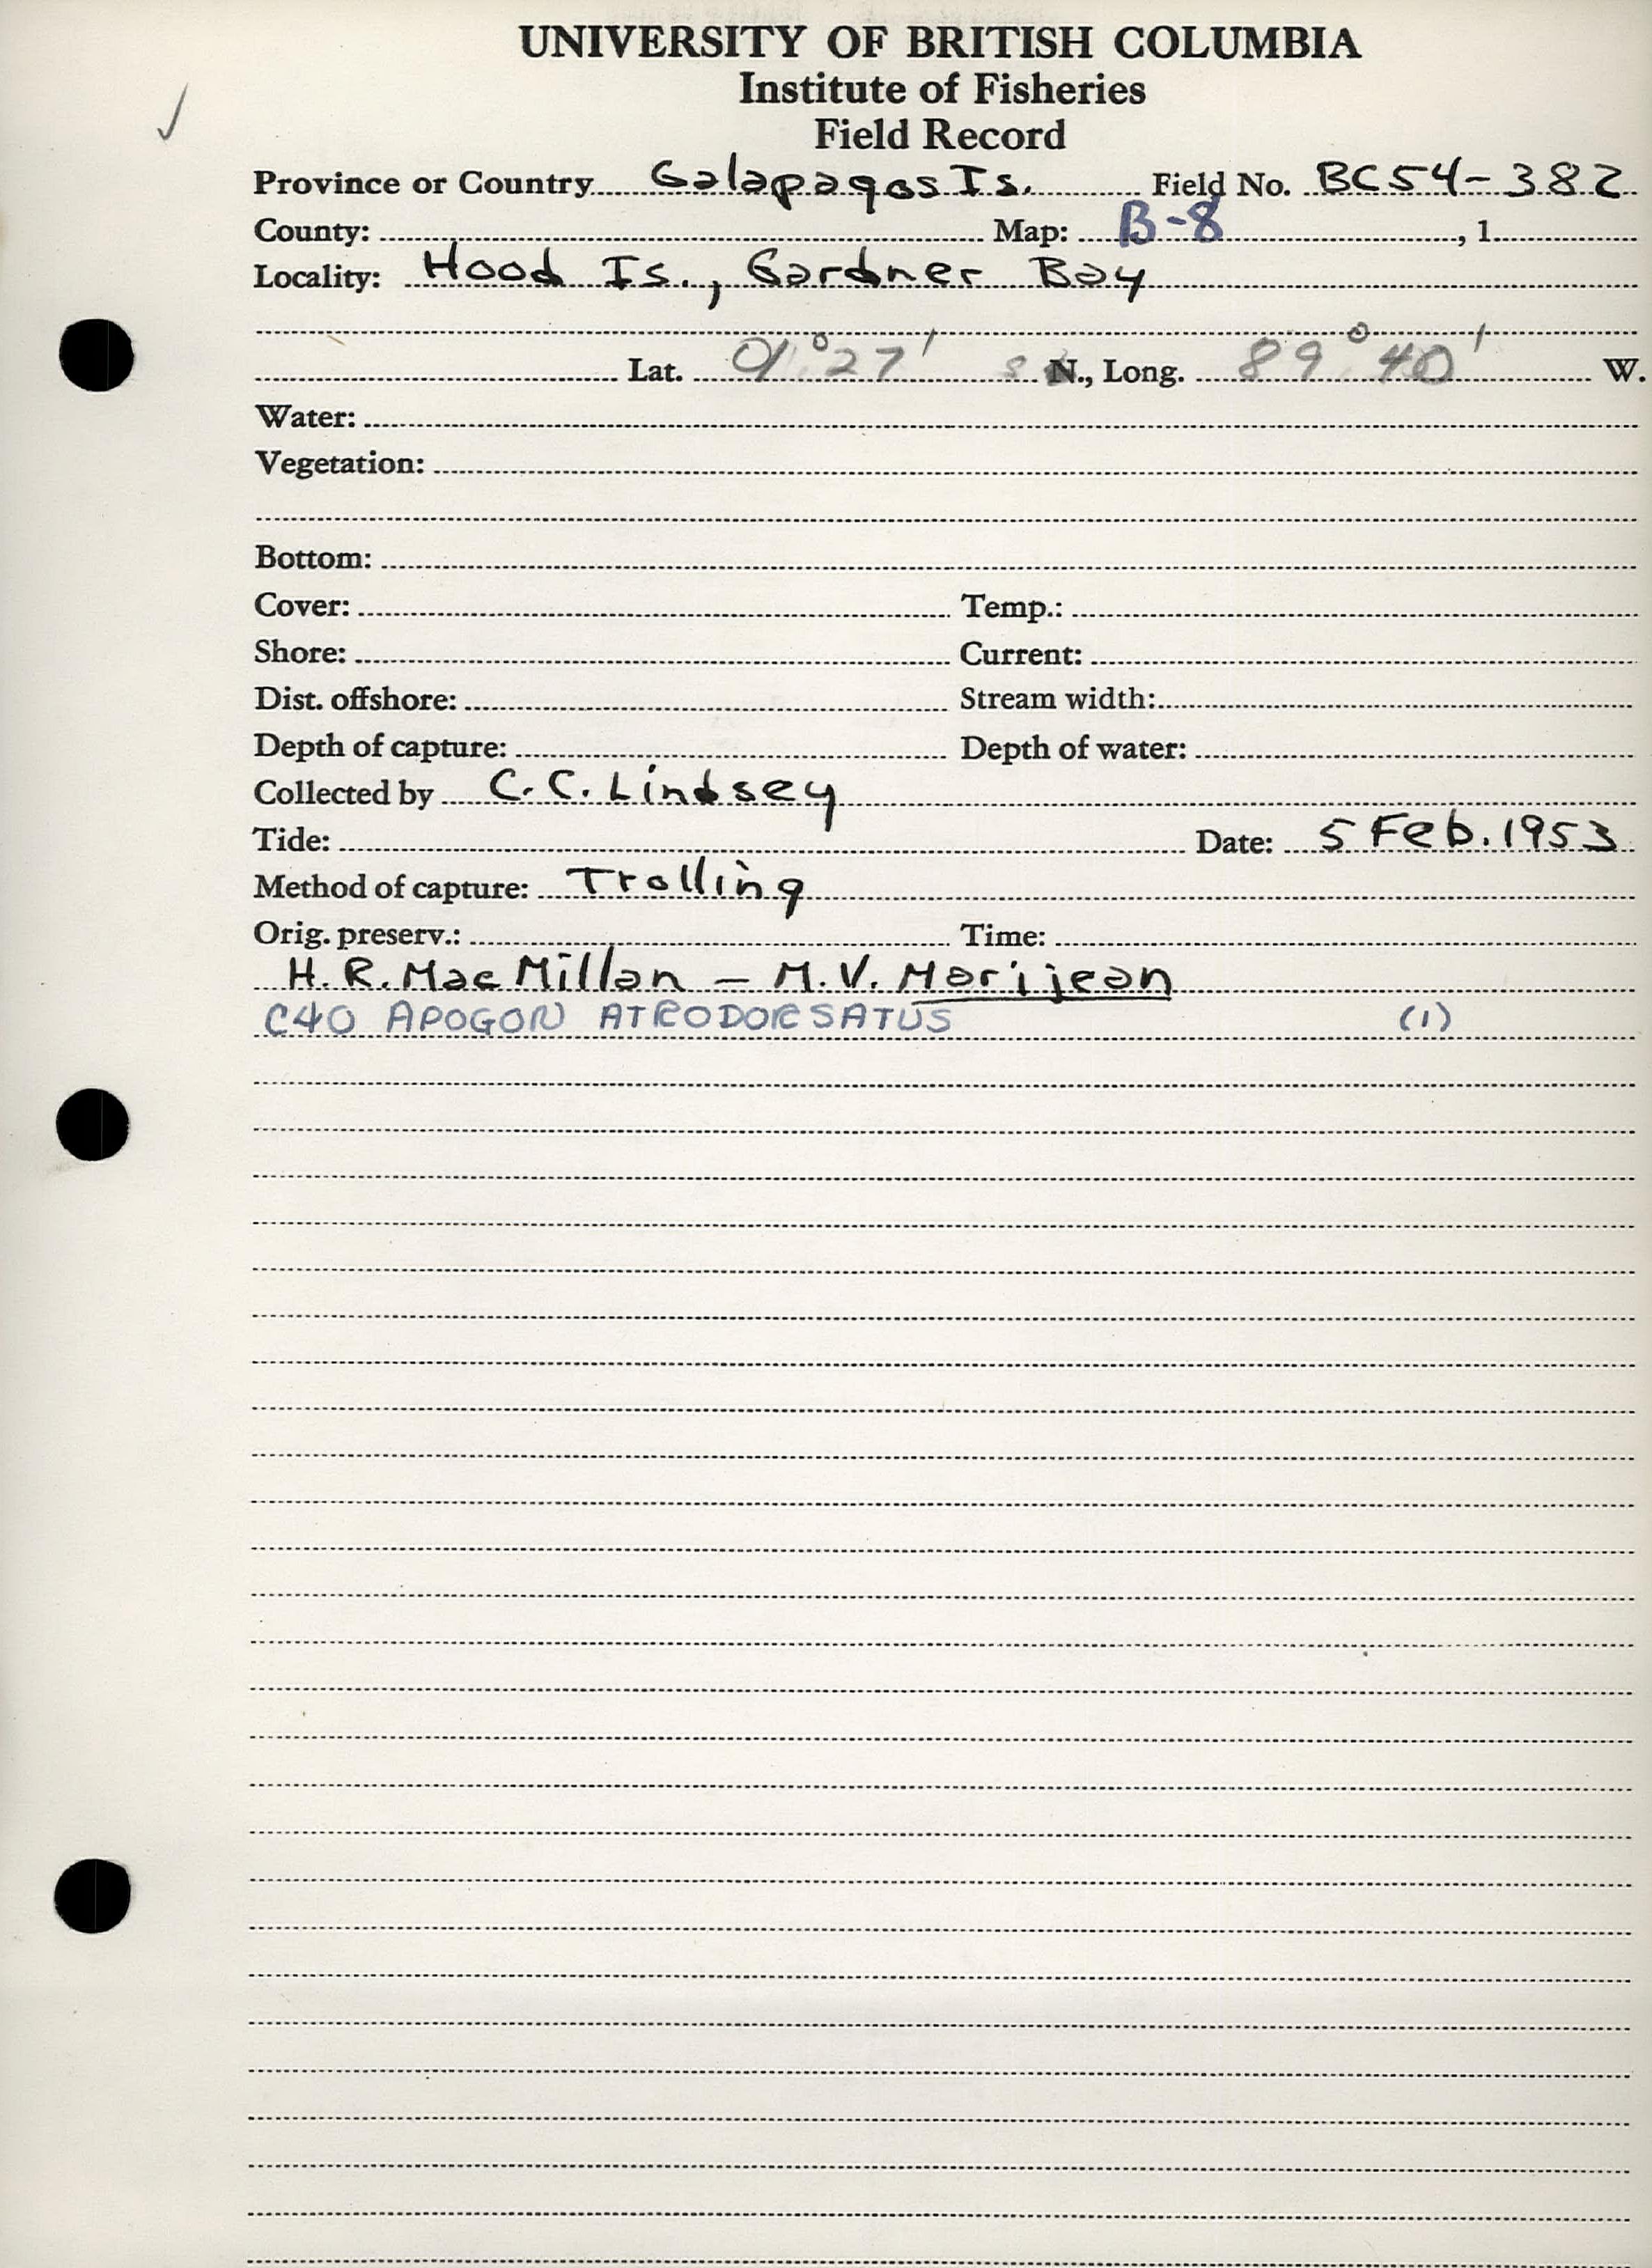 UNIVERSITY OF BRITISH COLUMBIA
Institute of Fisheries
Field Record
Province or Country Galapagos Is. Field No. BC54-382
County: Map: B-8 , 1
Locality: Hood Is., Gardner Bay
Lat. 01°27' S N., Long. 89°40' W.
Water:
Vegetation:
Bottom:
Cover: Temp.:
Shore: Current:
Dist. offshore: Stream width:
Depth of capture: Depth of water:
Collected by C. C. Lindsey
Tide: Date: 5 Feb. 1953
Method of capture: Trolling
Orig. preserv.: Time:
H. R. MacMillan – M. V. Marijean
C40 APOGON ATRODORSATUS (1)